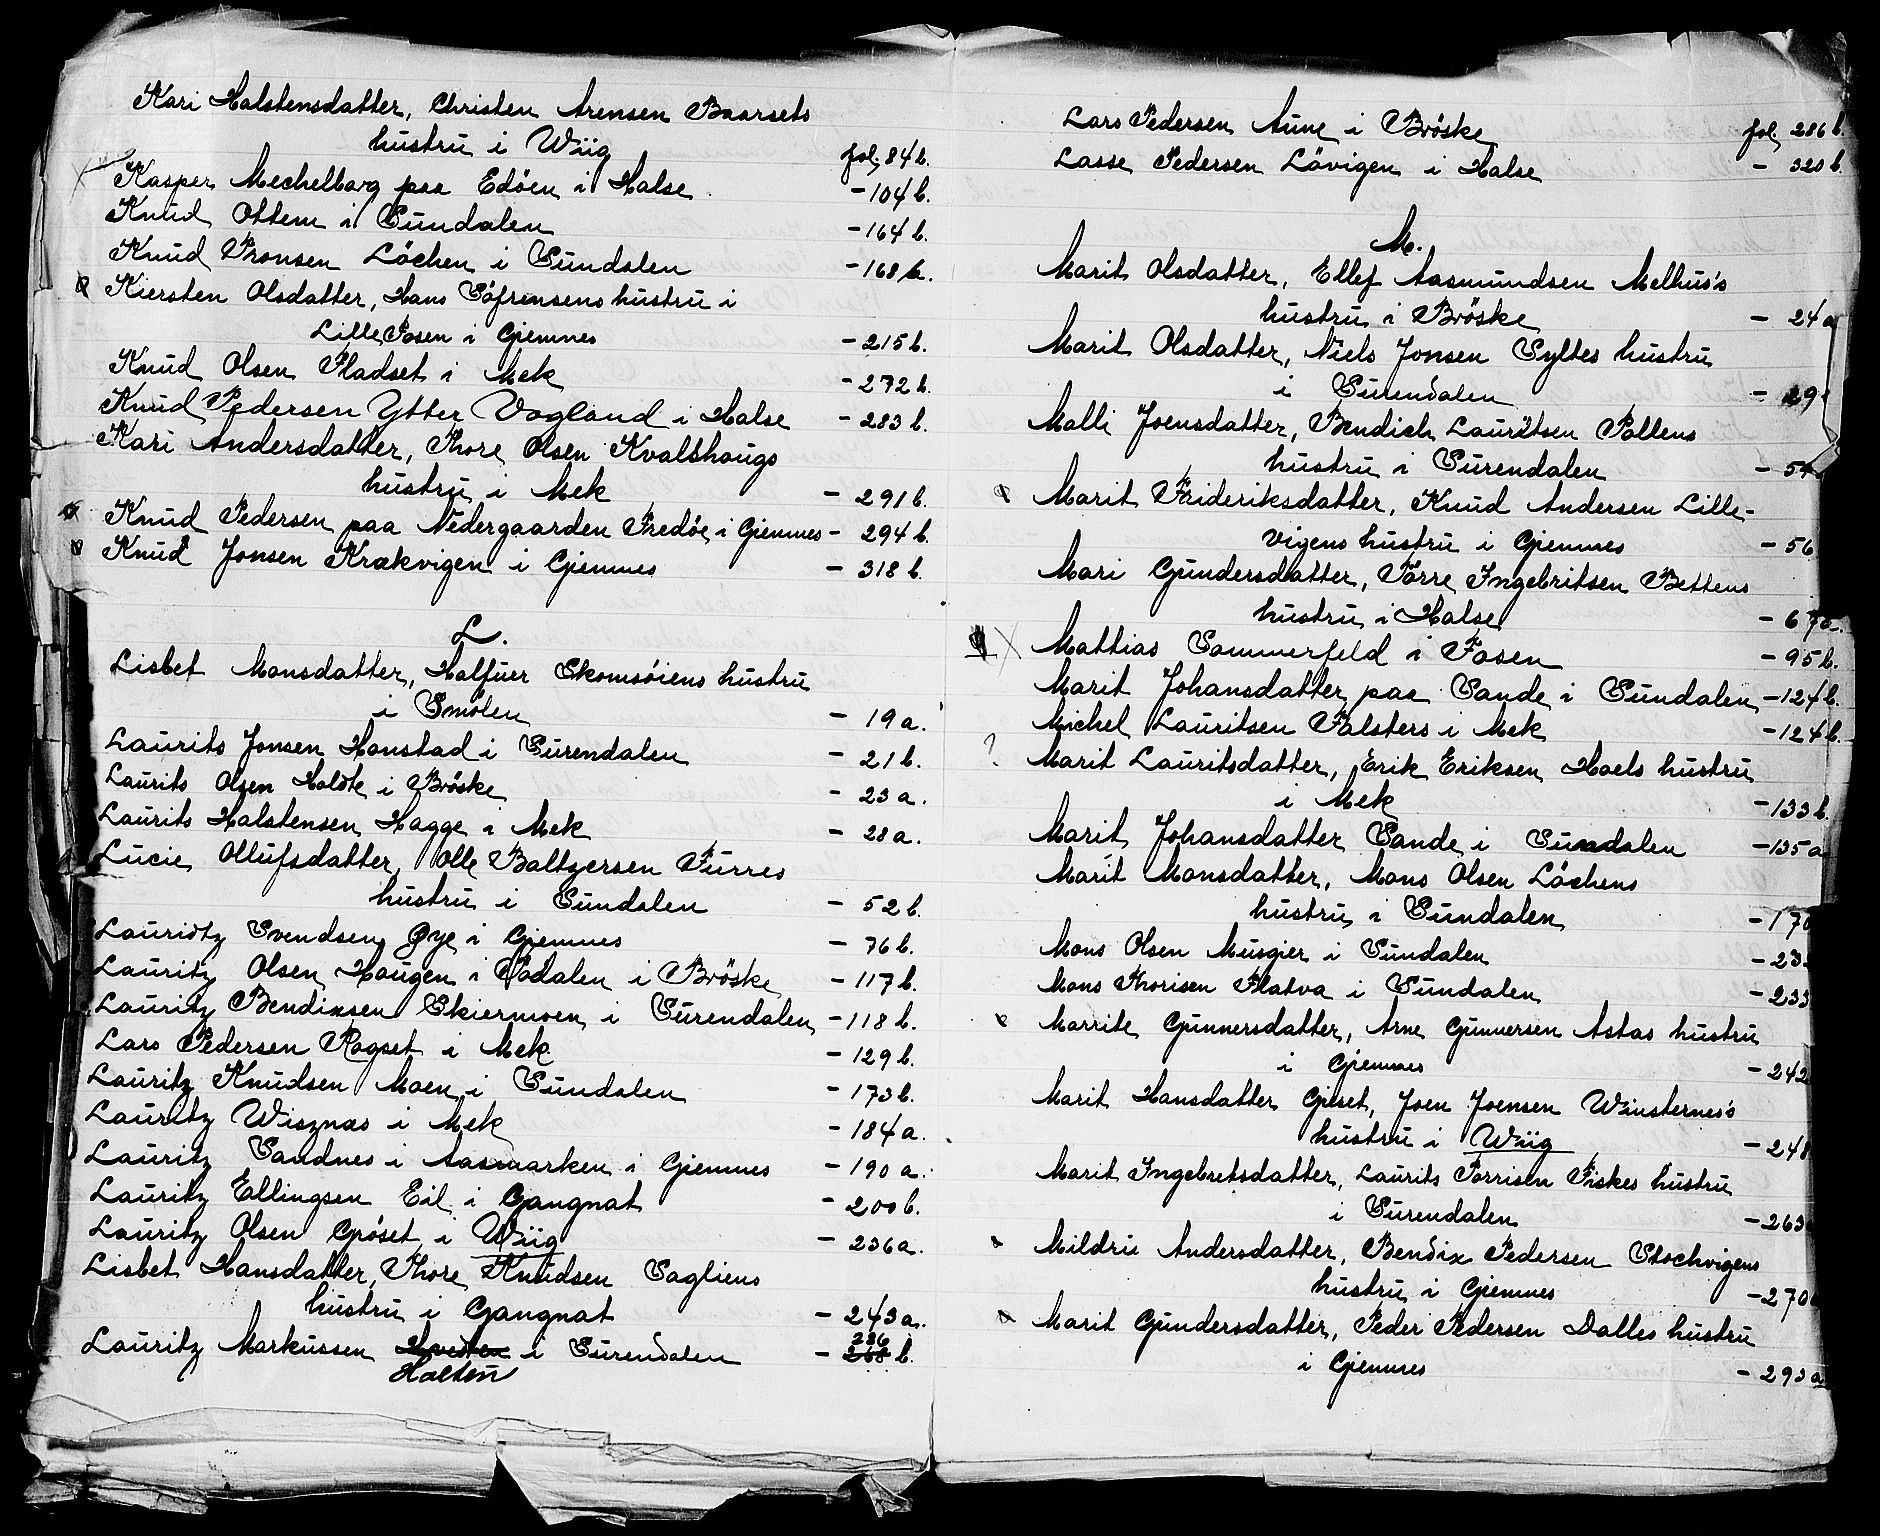 Kari Halstensdatter, Christen Arensen Baarsets
hustru i Wiig fol. 84 b.
Kasper Mechelborg paa Edöen i Halse. - 104 b.
Knud Ottem i Sundalen - 164 b.
Knud Tronsen Löchen i Sundalen - 168 b.
Kiersten Olsdatter, Hans Söfrensens hustru i
Lille Fosen i Gjemnes - 215 b.
Knud Olsen Fladset i Mek - 272 b.
Knud Pedersen Ytter Vagland i Halse - 283 b.
Kari Andersdatter, Thore Olsen Kvalshaugs
hustru i Mek - 291 b.
Knud Pedersen paa Nedergaarden Fredöe i Gjemnes - 294 b.
Knud Jonsen Krækvigen i Gjemnes - 318 b.
L.
Lisbet Monsdatter, Halfuer Skomsöiens hustru
i Smölen - 19 a.
Laurits Jonsen Honstad i Surendalen - 21 b.
Laurits Olsen Holdte i Bröske - 23 a.
Laurits Halstensen Hagge i Mek - 28 a.
Lucie Ollufsdatter, Olle Baltzersen Furres
hustru i Sundalen - 52 b.
Lauridtz Svendsen Øye i Gjemnes - 76 b.
Lauritz Olsen Haugen i Todalen i Bröske - 117 b.
Lauritz Bendixsen Skiermoen i Surendalen - 118 b.
Lars Pedersen Rogset i Mek - 129 b.
Lauritz Knudsen Moen i Sundalen - 173 b.
Lauritz Wisznæs i Mek - 184 a.
Lauritz Sandnes i Aasmarken i Gjemnes - 190 a.
Lauritz Ellingsen Eil i Gangnat - 200 b.
Lauritz Olsen Gröset i Wiig - 236 a.
Lisbet Hansdatter, Thore Knudsen Sagliens
hustru i Gangnat - 243 a.
Lauritz Markussen i Surendalen - 268 b.
Holten
Lars Pedersen Aune i Bröske fol. 286 b.
Lasse Pedersen Lövigen i Halse - 320 b.
M.
Marit Olsdatter, Ellef Aasmundsen Melhus's
hustru i Bröske - 24 a
Marit Olsdatter, Niels Jonsen Syltes hustru
i Surendalen - 29
Malli Joensdatter, Bendich Lauritsen Pollens
hustru i Surendalen - 54
Marit Frideriksdatter, Knud Andersen Lille-
vigens hustru i Gjemnes - 56
Mari Gundersdatter, Törre Ingebritsen Bettens
hustru i Halse - 67 a.
Mattias Sommerfeld i Fosen - 95 b.
Marit Johansdatter paa Sande i Sundalen - 124 b.
Michel Lauritsen Falsters i Mek - 124 b.
? Marit Lauritsdatter, Erik Eriksen Hoels hustru
i Mek - 133 b.
Marit Johansdatter Sande i Sundalen - 135 a
Marit Monsdatter, Mons Olsen Löchens
hustru i Sundalen - 170
Mons Olsen Musgier i Sundalen - 233
Mons Thorisen Flatva i Sundalen - 233
Marrite Gunnersdatter, Arne Gunnersen Astas hustru
i Gjemnes - 242
Marit Hansdatter Giset, Joen Joensen Winsternes's
hustru i Wiig - 248
Marit Ingebretsdatter, Laurits Torrisen Fiskes hustru
i Surendalen - 263
Mildrie Andersdatter, Bendix Pedersen Stochvigens
hustru i Gjemnes - 270
Marit Gundersdatter, Peder Pedersen Dalles hustru
i Gjemnes - 293 a